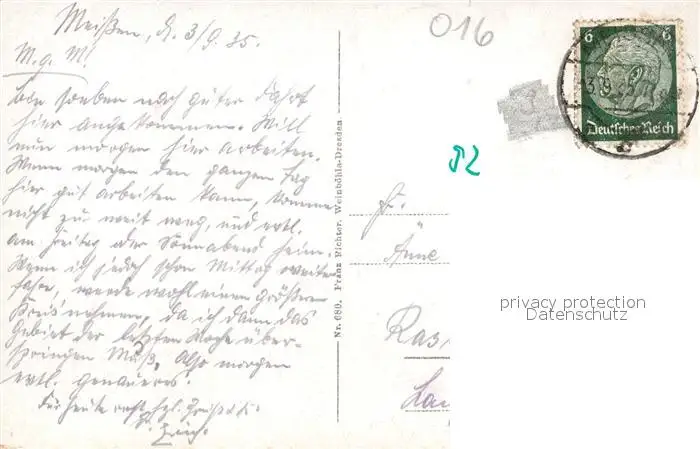 Meißen, d. 3/9. 35.
M. g. M!
Bin soeben nach guter Fahrt
hier angekommen. Will
nun morgen hier arbeiten.
Wenn morgen den ganzen Tag
hier gut arbeiten kann, komme
nicht zu weit weg, und evtl.
am Freitag oder Sonnabend heim.
Wenn ich jedoch schon Mittag weiter
fahre, werde wohl einen größeren
Kreis nehmen, da ich dann das
Gebiet der letzten Woche über-
springen muß. Also morgen
evtl. genaueres.
Für heute recht hzl. Grüße
Nr. 680. Franz Richter, Weinböhla-Dresden
016
52
6 6
Deutsches Reich
Fr.
Änne
Ras
Lau
privacy protection
Datenschutz